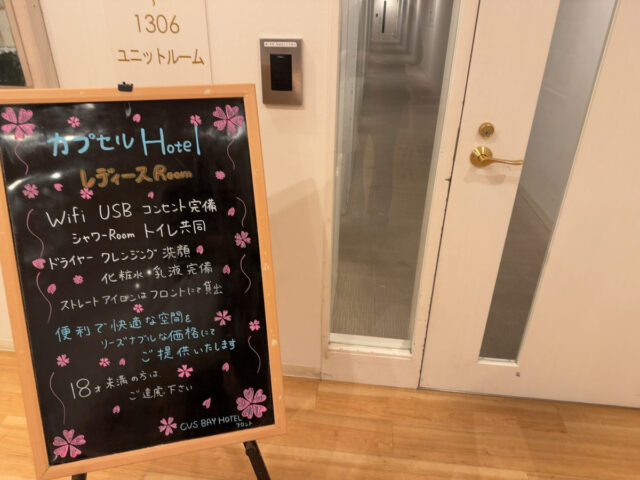 1306
ユニットルーム
カプセル Hotel
レディース Room
Wifi USB コンセント完備
シャワーRoom トイレ共同
ドライヤー クレンジング 洗顔
化粧水・乳液完備
ストレートアイロンはフロントにて貸出
便利で快適な空間を
リーズナブルな価格にて
ご提供いたします
18才未満の方は
ご遠慮下さい
CVS BAY HOTEL
フロント